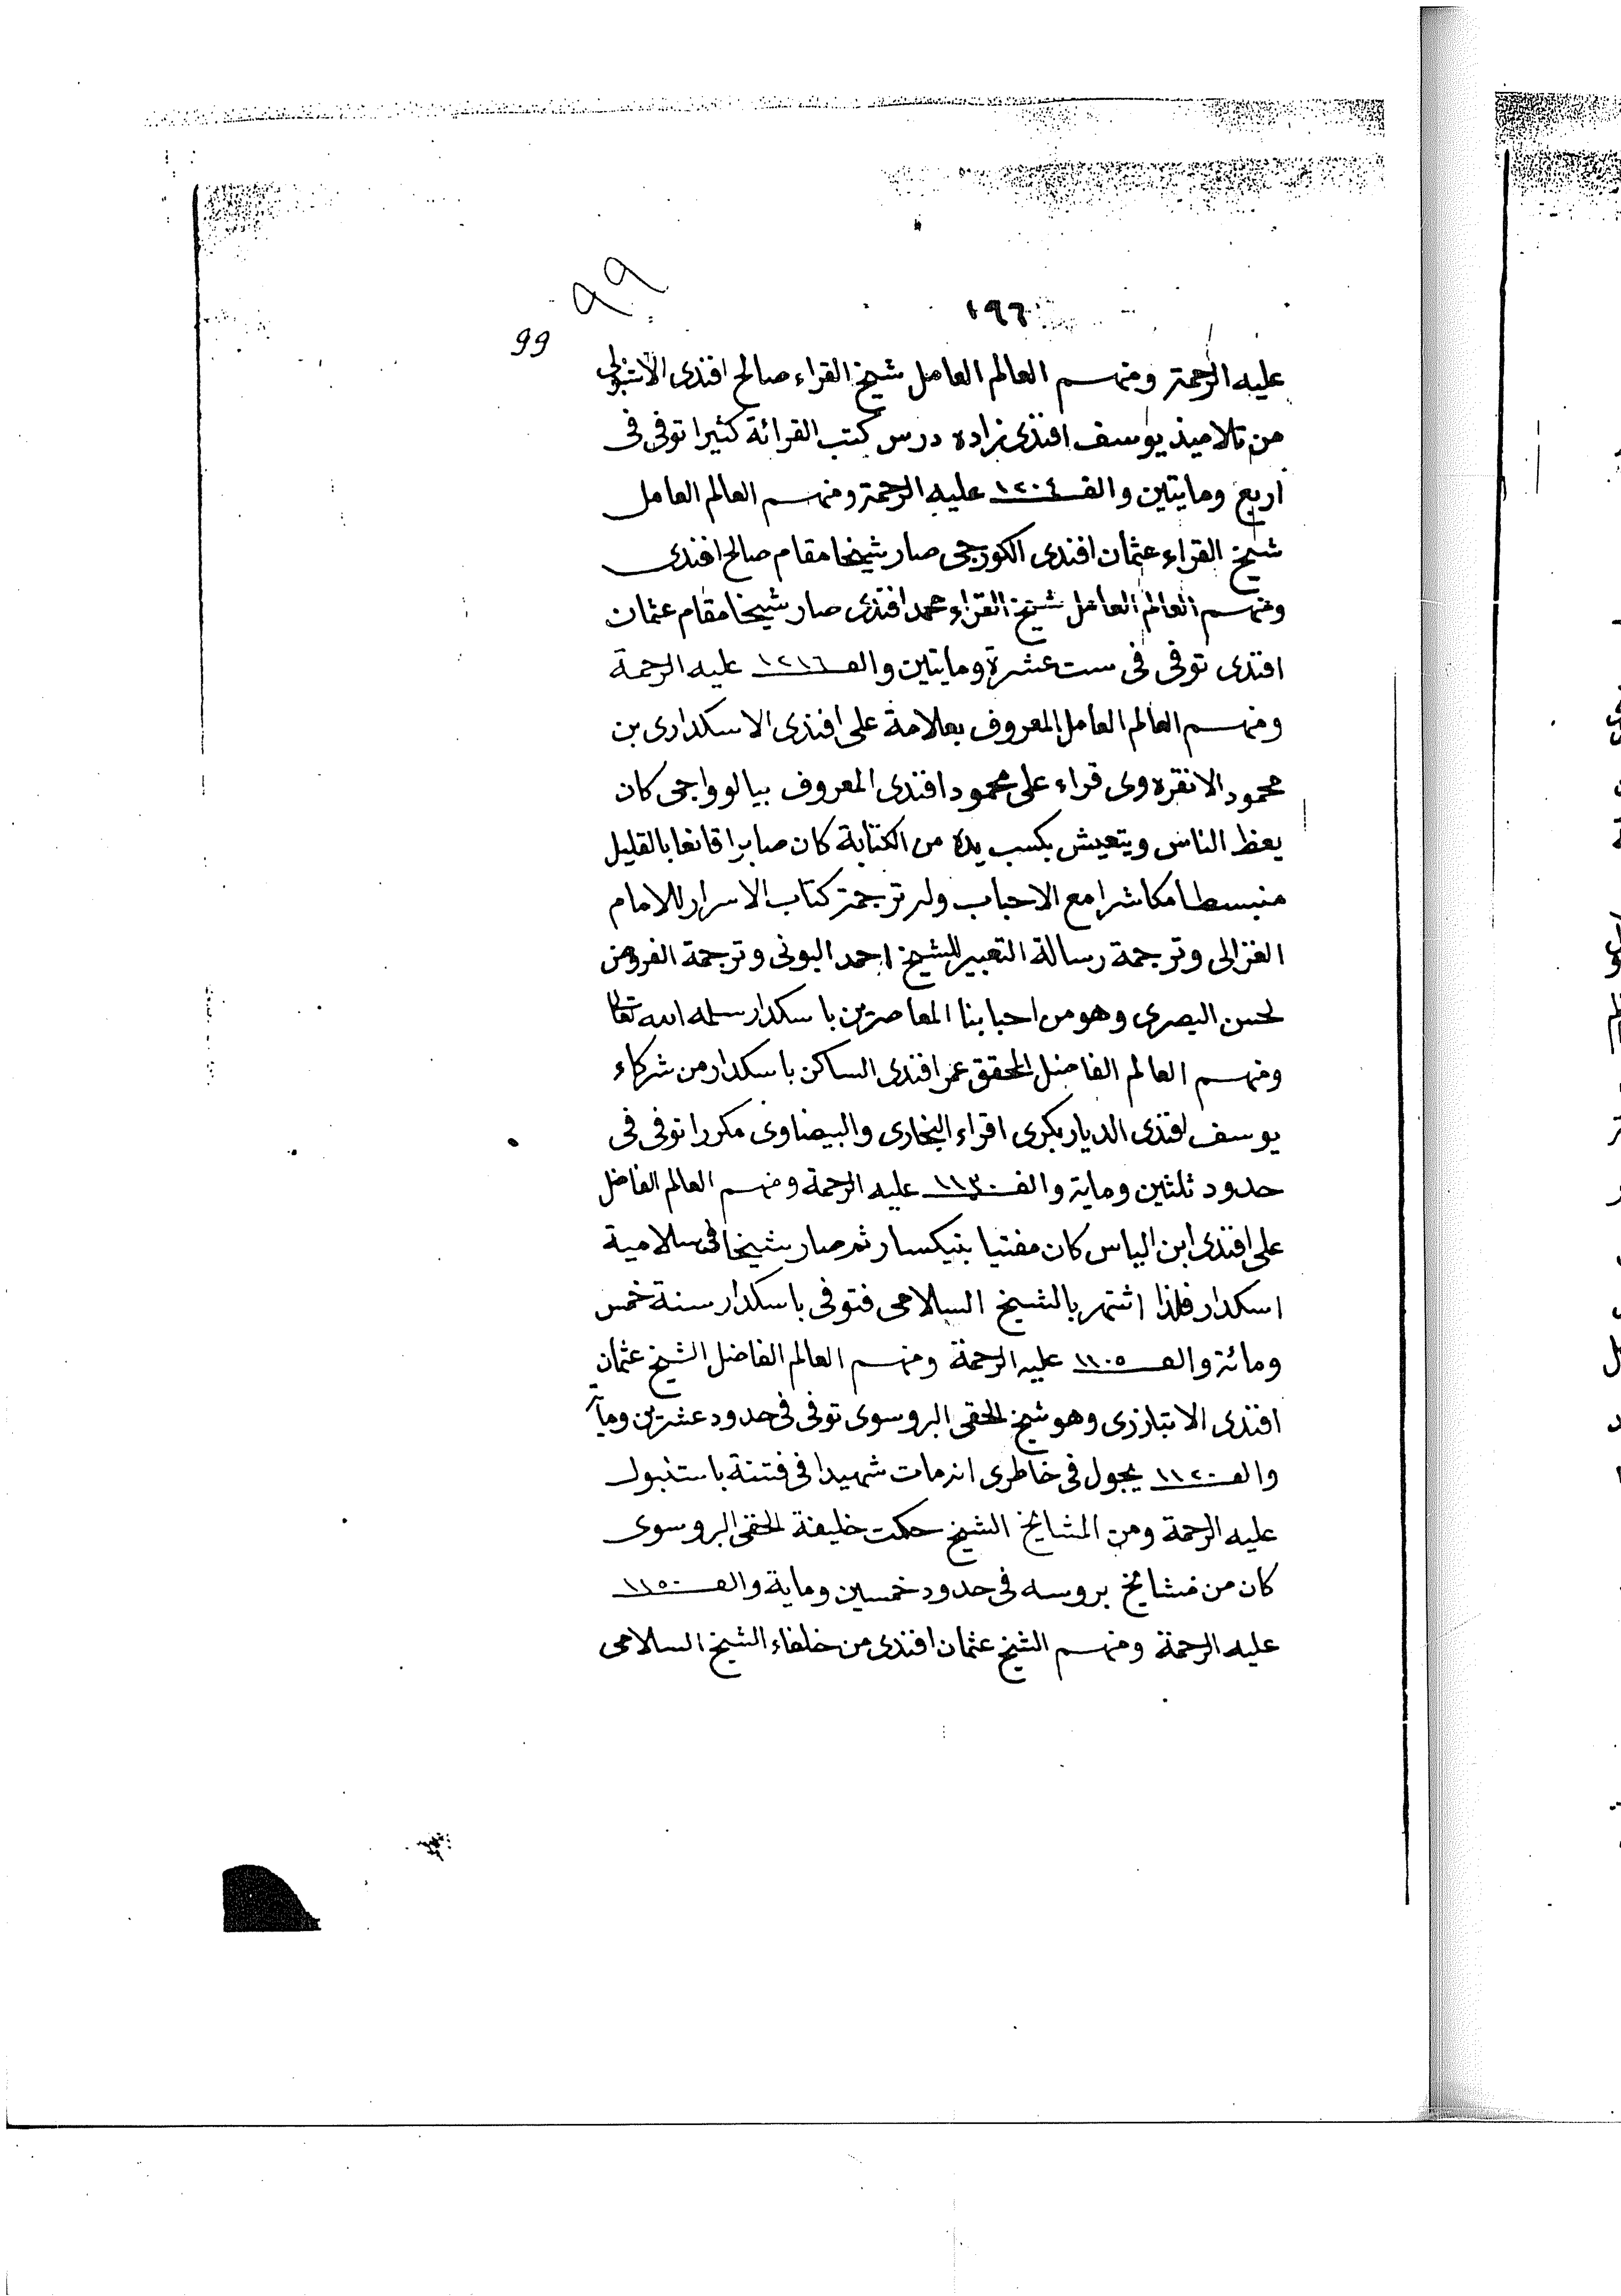 ٩٩
١٩٦
99
عليه الرحمة ومنهم العالم العامل شيخ القراء صالح افندى الاستنبولى
من تلاميذ يوسف افندى زاده درس كتب القرائة كثيرا توفى فى
اربع ومايتين والف ١٢٠٤ عليه الرحمة ومنهم العالم العامل
شيخ القراء عثمان افندى الكورجى صار شيخا مقام صالح افندى
ومنهم العالم العامل شيخ القراء محمد افندى صار شيخا مقام عثمان
افندى توفى فى ست عشرة ومايتين والف ١٢١٦ عليه الرحمة
ومنهم العالم العامل المعروف بعلامة على افندى الاسكدارى بن
محمود الانقره وى قراء على محمود افندى المعروف بيالوواجى كان
يعظ الناس ويتعيش بكسب يده من الكتابة كان صابرا قانعا بالقليل
منبسطا مكاشرا مع الاحباب وله ترجمة كتاب الاسرار للامام
الغزالى وترجمة رسالة التعبير للشيخ احمد البونى وترجمة الفروض
لحسن البصرى وهو من احبابنا المعاصرين باسكدار سلمه الله تعالى
ومنهم العالم الفاضل المحقق عمر افندى الساكن باسكدار من شركاء
يوسف افندى الدياربكرى اقراء البخارى والبيضاوى مكررا توفى فى
حدود ثلثين وماية والف ١١٣٠ عليه الرحمة ومنهم العالم الفاضل
على افندى ابن الياس كان مفتيا بنيكسار ثم صار شيخا فى سلامية
اسكدار فلذا اشتهر بالشيخ السلامى فتوفى باسكدار سنة خمس
ومائة والف ١١٠٥ عليه الرحمة ومنهم العالم الفاضل الشيخ عثمان
افندى الاتبازرى وهو شيخ الحقى البروسوى توفى فى حدود عشرين وماية
والف ١١٢٠ يجول فى خاطرى انه مات شهيدا فى فتنة باستنبول
عليه الرحمة ومن المشايخ الشيخ حكمت خليفة الحقى البروسوى
كان من مشايخ بروسه فى حدود خمسين وماية والف ١١٥٠
عليه الرحمة ومنهم الشيخ عثمان افندى من خلفاء الشيخ السلامى